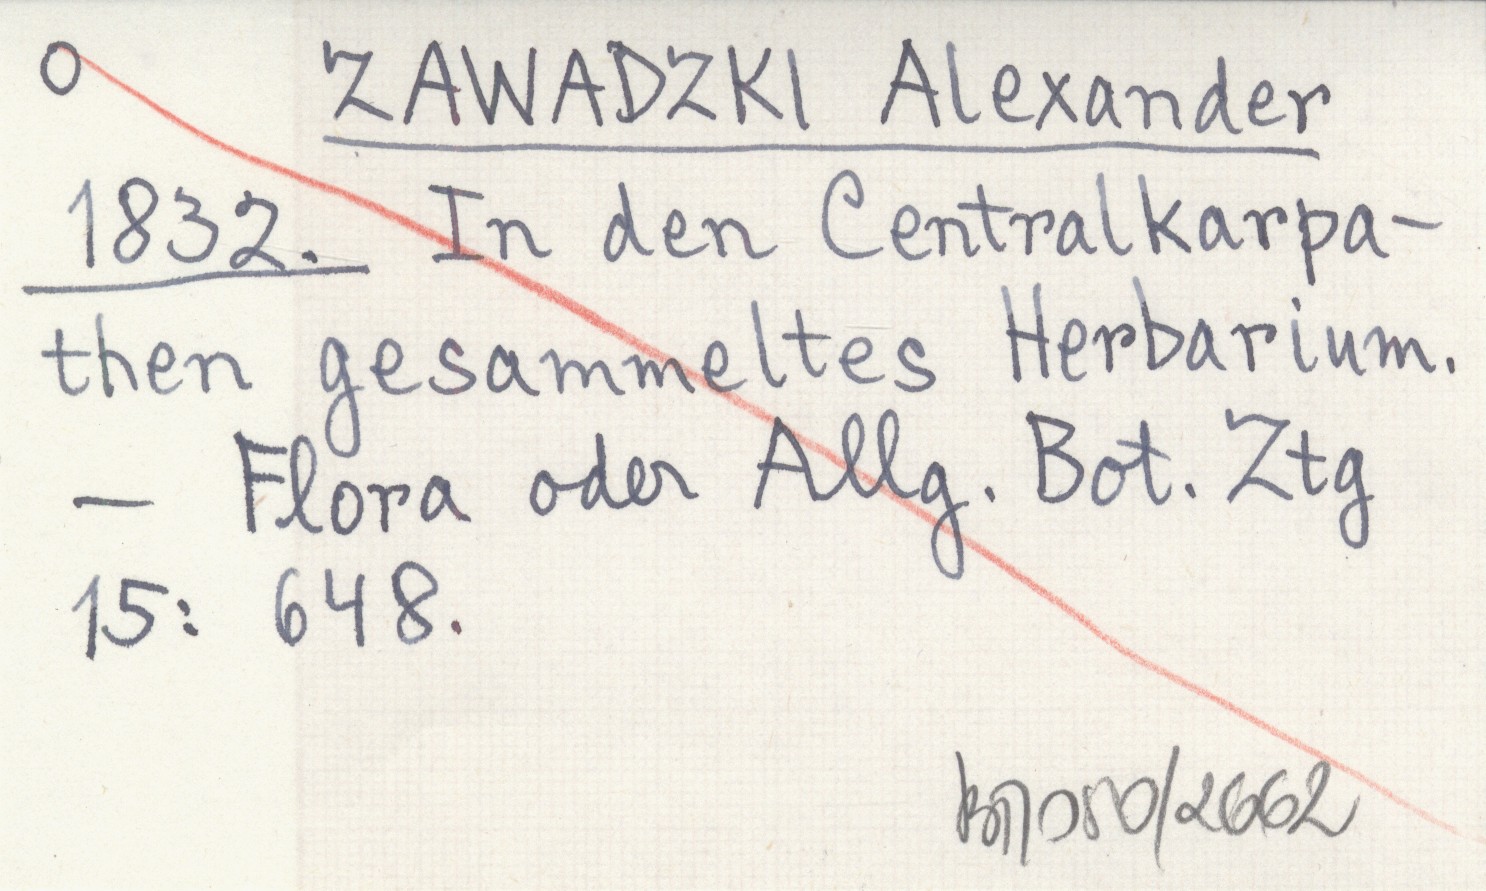 O ZAWADZKI Alexander
1832. In den Centralkarpa-
then gesammeltes Herbarium.
— Flora oder Allg. Bot. Ztg
15: 648.